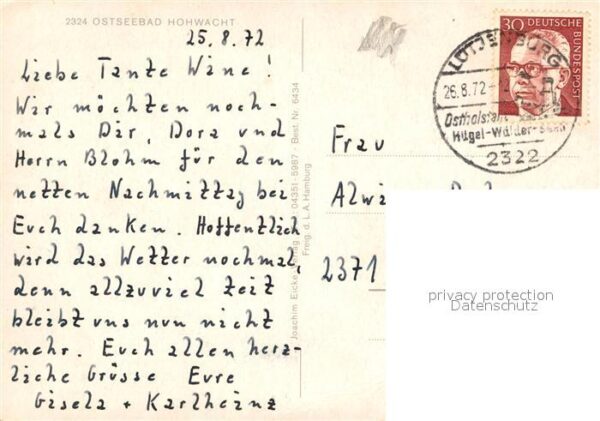 2324 OSTSEEBAD HOHWACHT
25.8.72
Liebe Tante Wine!
Wir möchten noch-
mals Dir, Dora und
Herrn Blohm für den
netten Nachmittag bei
Euch danken. Hoffentlich
wird das Wetter nochmal,
denn allzuviel Zeit
bleibt uns nun nicht
mehr. Euch allen herz-
liche Grüsse Eure
Gisela + Karlheinz
Joachim Eicke 04351-5987 · Best. Nr. 6434
Freig. d. L. A. Hamburg
30 DEUTSCHE
BUNDESPOST
LÜTJENBURG
26.8.72
Ostholstein
Hügel-Wälder-Seen
2322
Frau
2371
privacy protection
Datenschutz